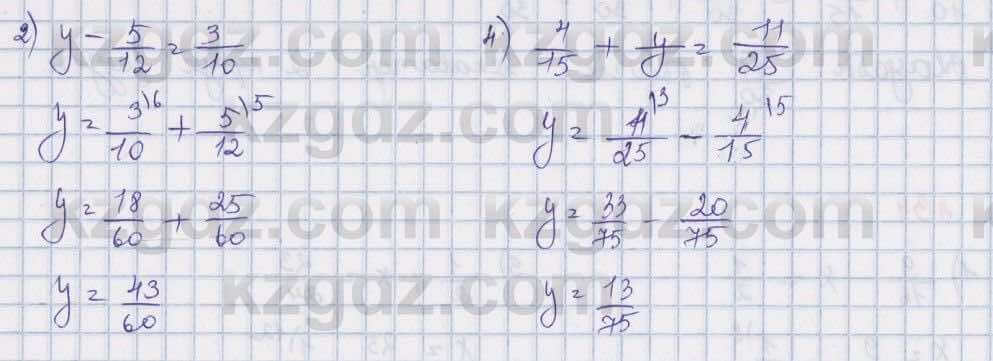 2) y - 5/12 = 3/10
y = 3\6/10 + 5\5/12
y = 18/60 + 25/60
y = 43/60
4) 4/15 + y = 11/25
y = 11\3/25 - 4\5/15
y = 33/75 - 20/75
y = 13/75
kzgdz.com
kzgdz.com
kzgdz.com
kzgdz.com
kzgdz.com
kzgdz.com
kzgdz.com